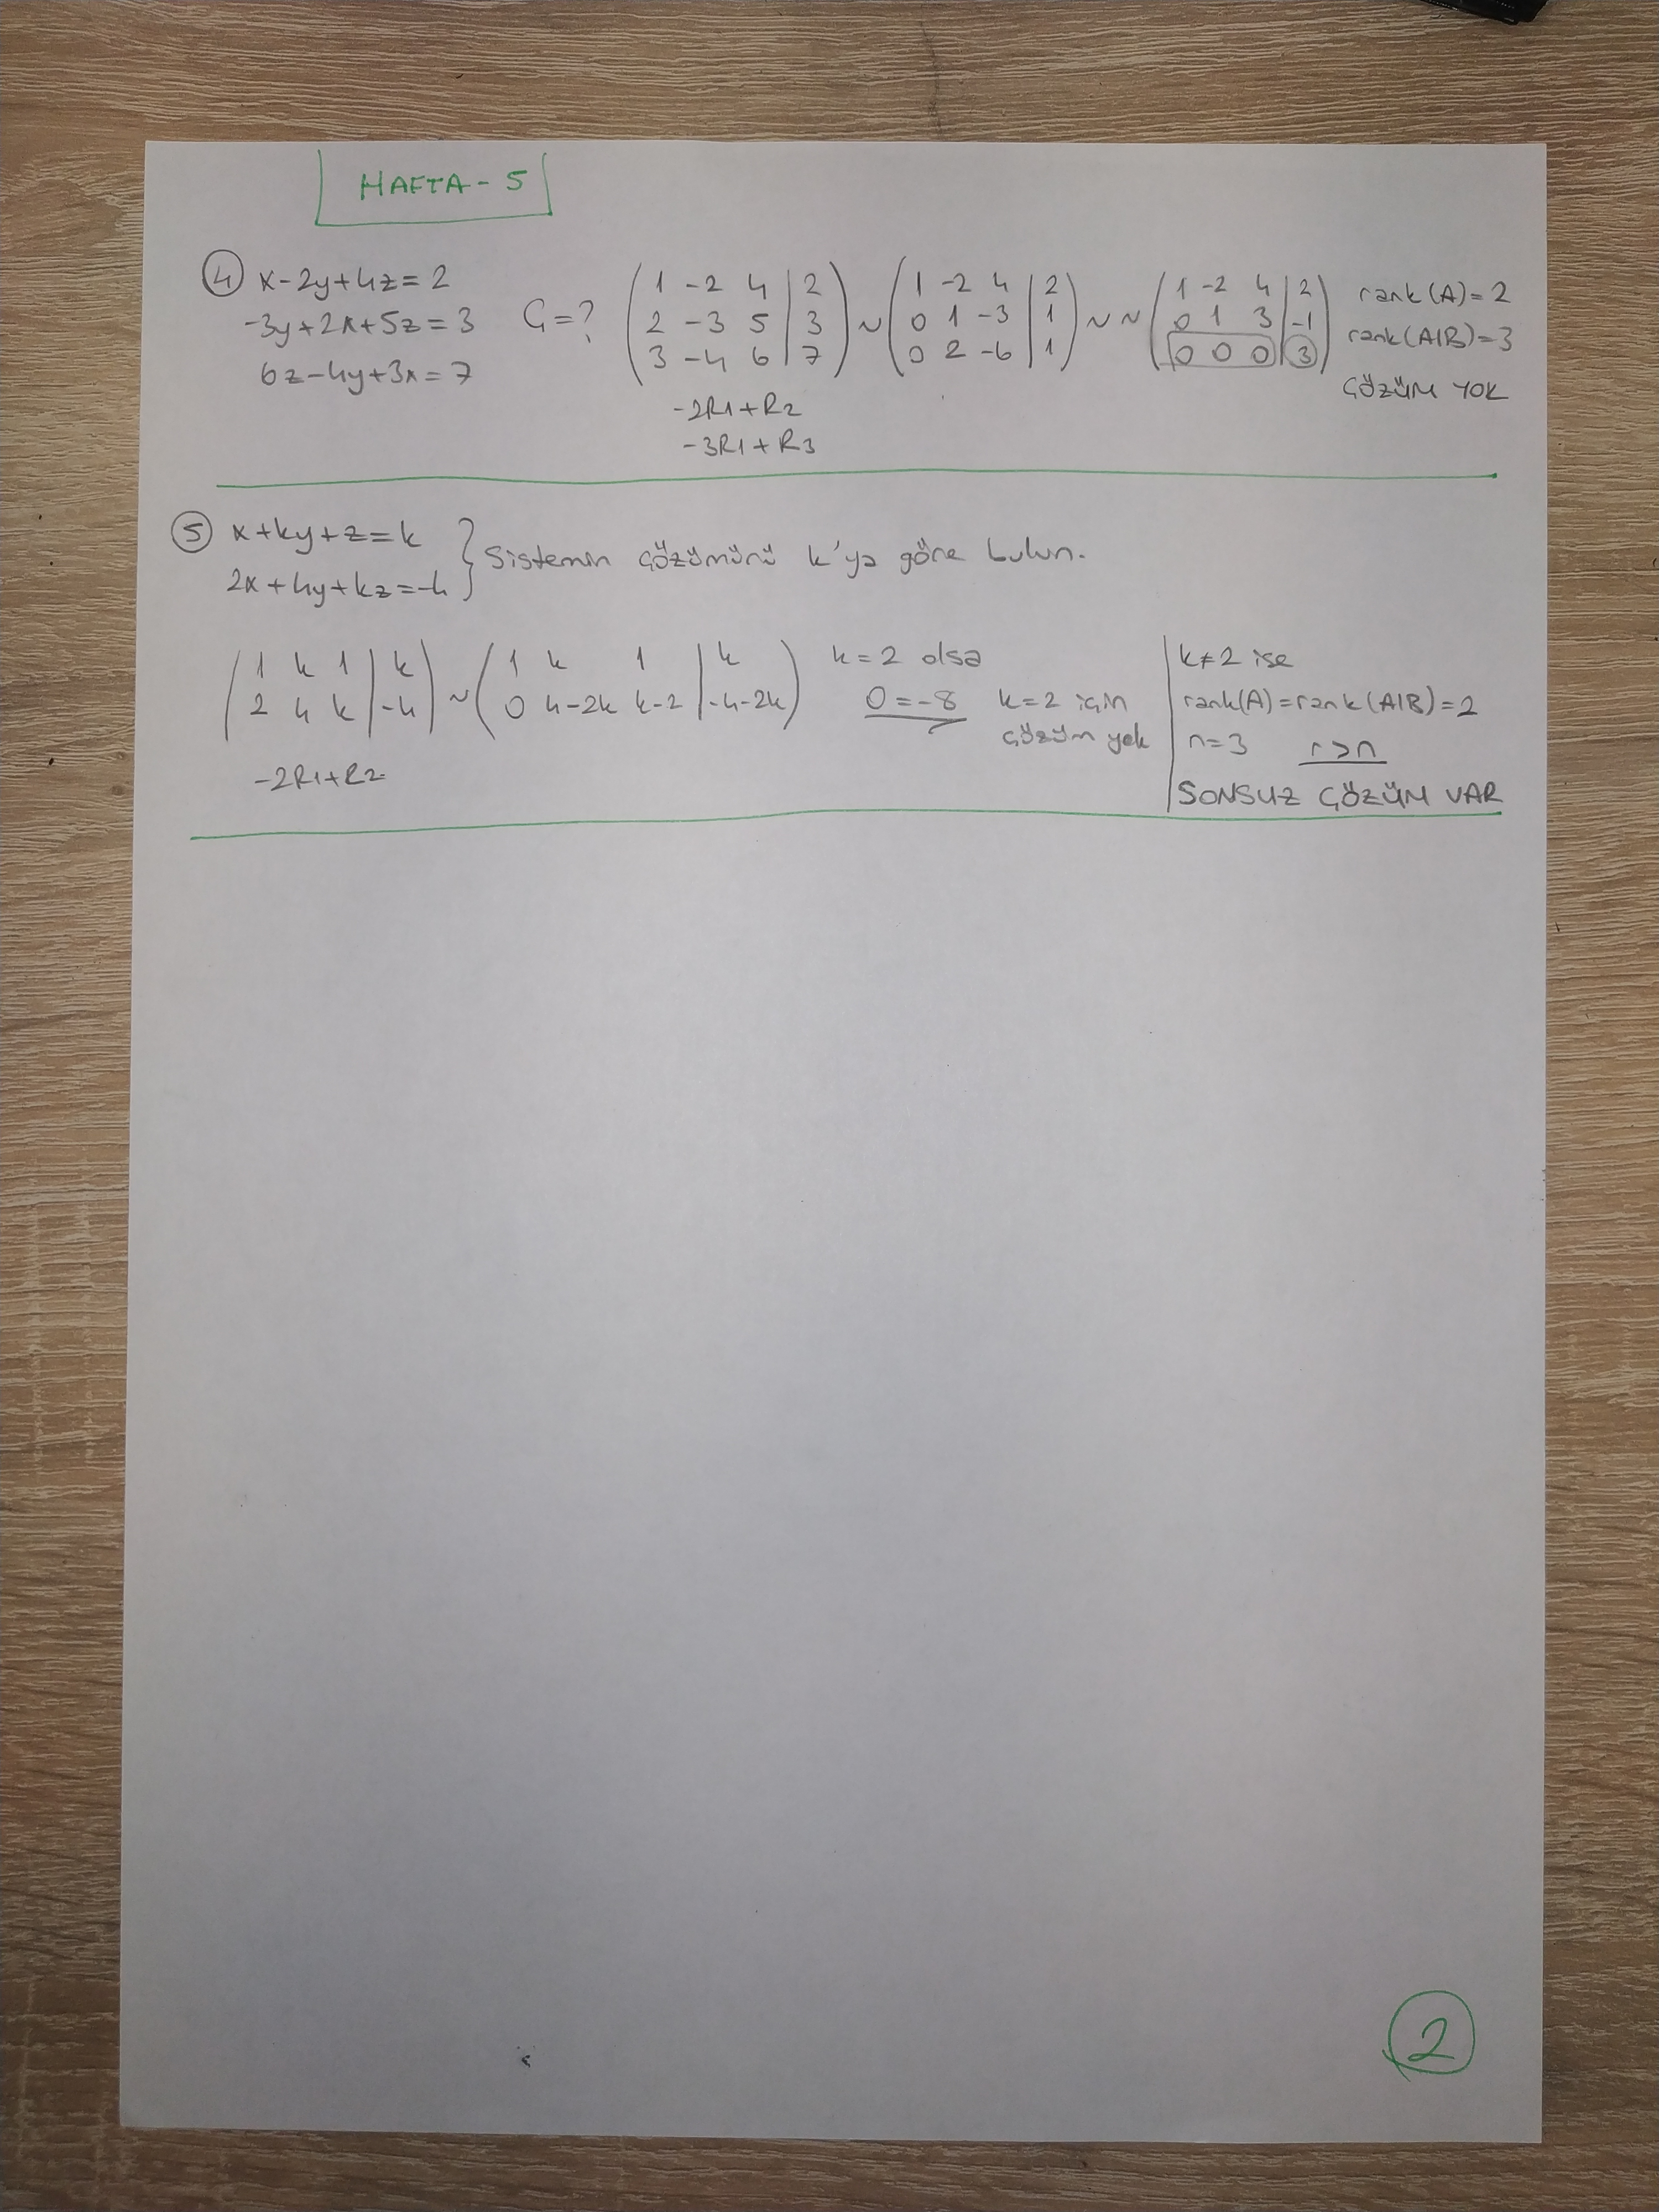 HAFTA-5
④ x-2y+4z=2
-3y+2x+5z=3 Ç=?
6z-4y+3x=7
(1 -2 4 | 2
2 -3 5 | 3
3 -4 6 | 7) ~ (1 -2 4 | 2
0 1 -3 | 1
0 2 -6 | 1) ~ ~ (1 -2 4 | 2
0 1 3 | -1
0 0 0 | 3)
rank(A)=2
rank(A|B)=3
ÇÖZÜM YOK
-2R1+R2
-3R1+R3
⑤ x+ky+z=k
2x+4y+kz=-4 } Sistemin çözümünü k'ya göre bulun.
(1 k 1 | k
2 4 k | -4) ~ (1 k 1 | k
0 4-2k k-2 | -4-2k)
-2R1+R2
k=2 olsa
0=-8
k=2 için
çözüm yok
k≠2 ise
rank(A)=rank(A|B)=2
n=3 r>n
SONSUZ ÇÖZÜM VAR
2